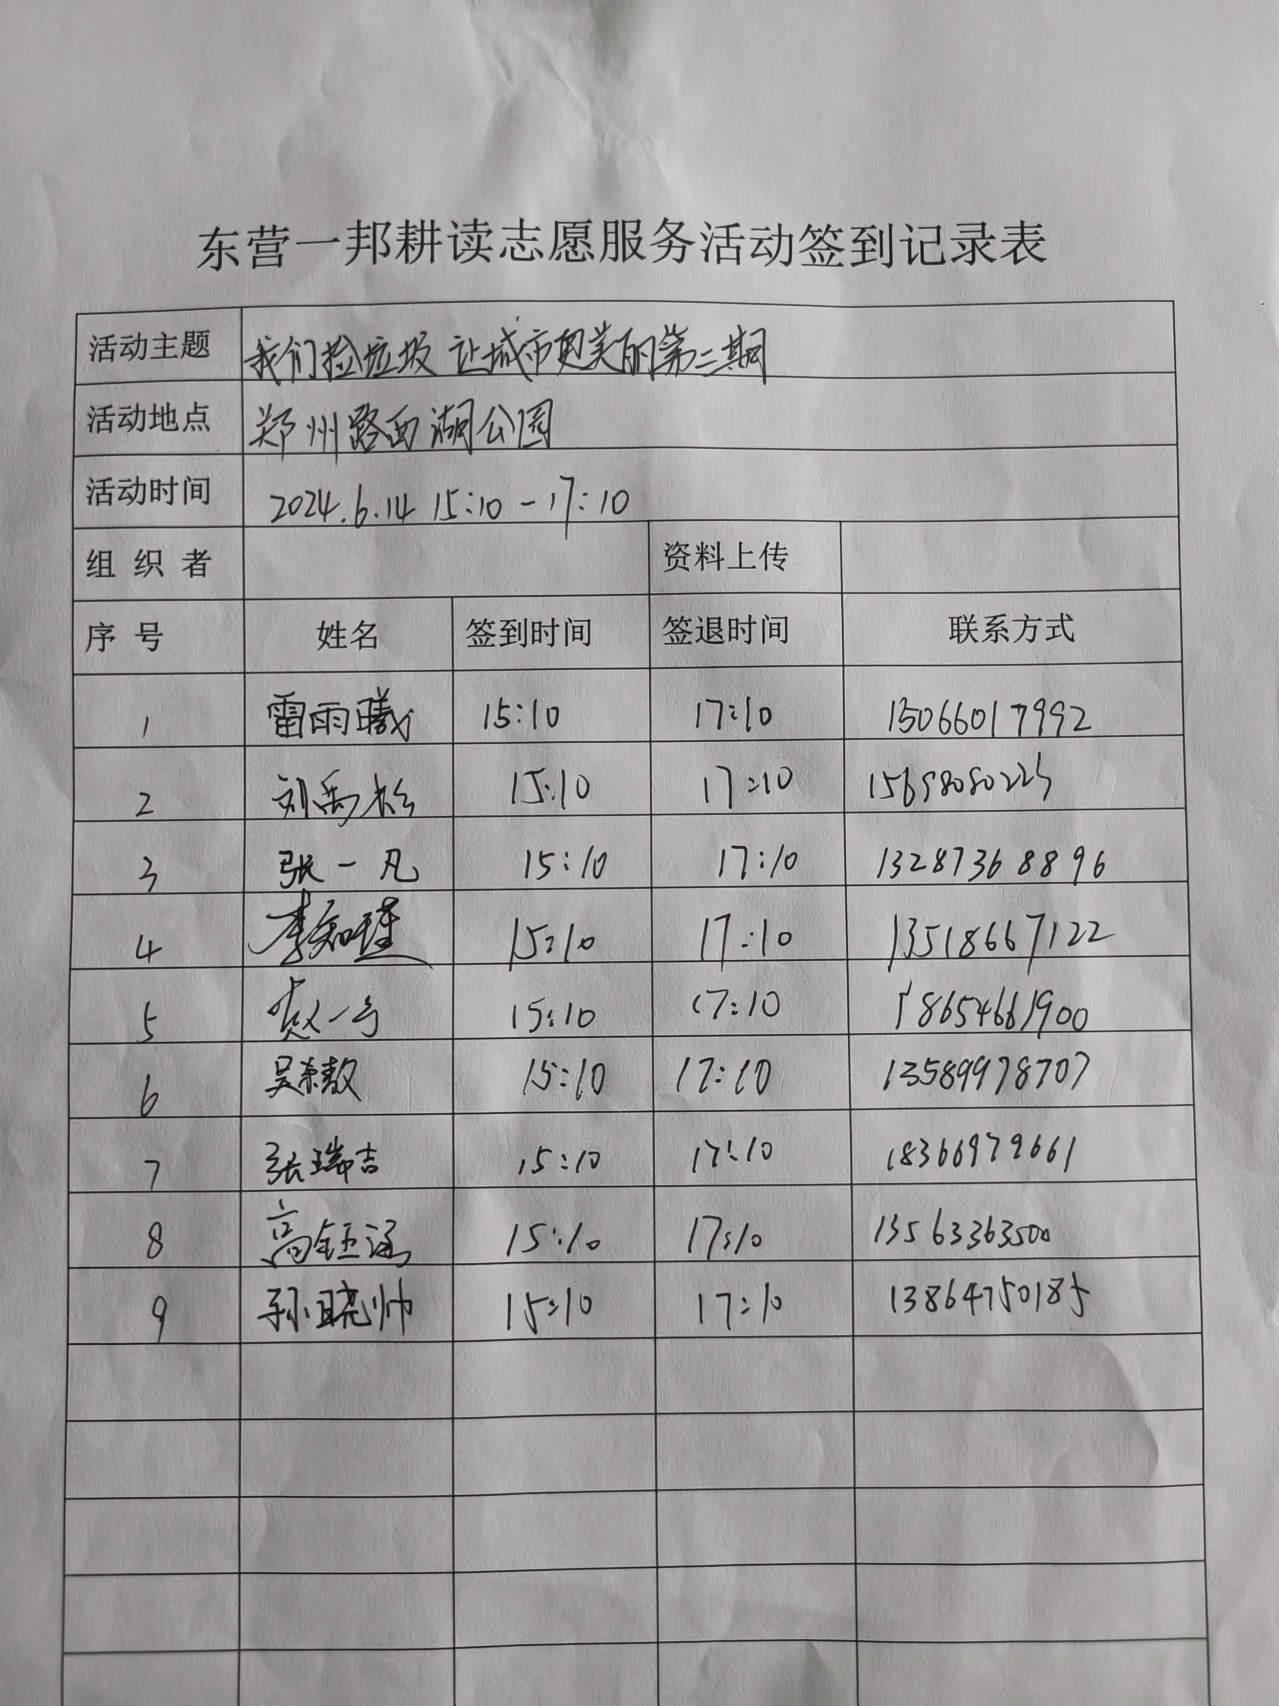 东营一邦耕读志愿服务活动签到记录表
活动主题 我们捡垃圾 让城市更美丽第二期
活动地点 郑州路西湖公园
活动时间 2024.6.14 15:10-17:10
组织者 资料上传
序号 姓名 签到时间 签退时间 联系方式
1 雷雨曦 15:10 17:10 15066017992
2 刘禹杉 15:10 17:10
3 张一凡 15:10 17:10 13287368896
4 李知瑾 15:10 17:10 13518667122
5 15:10 17:10 18654661900
6 15:10 17:10 13589978707
7 张瑞吉 15:10 17:10 18366979661
8 高钰涵 15:10 17:10 13563363500
9 孙晓帅 15:10 17:10 13864750185